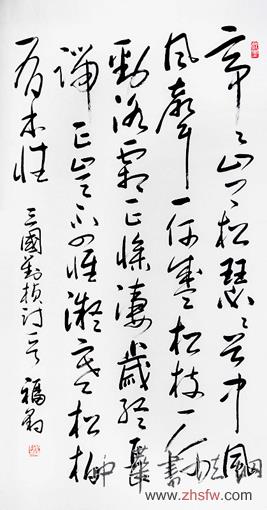 亭々山上松瑟々谷中風
風聲一何盛松枝一何
勁冰霜正慘淒歲終
端正豈不罹凝寒松柏
有本性
三國劉楨詩 福
中華書法網
www.zhsfw.com